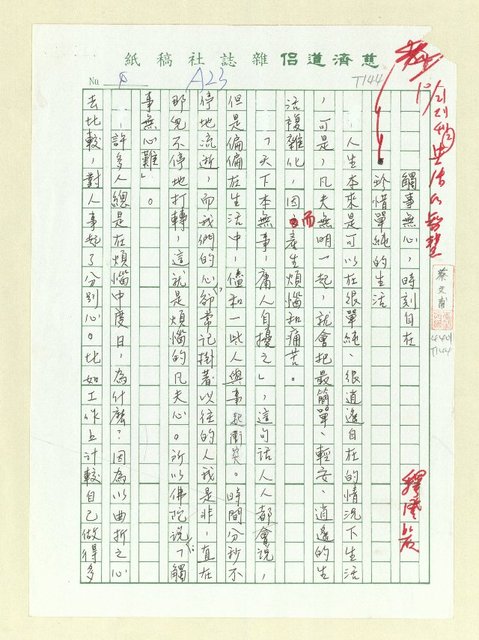 慧濟道侶雜誌社稿紙
No
A23
T144
觸事無心,時刻自在
珍惜單純的生活
人生本來是可以在很單純、很逍遙自在的情況下生活
,可是,凡夫無明一起,就會把最簡單、輕安、逍遙的生
活複雜化,因而產生煩惱和痛苦。
「天下本無事,庸人自擾之」,這句話人人都會說,
但是偏偏在生活中,儘和一些人與事起衝突。時間分秒不
停地流逝,而我們的心卻常記掛著以往的人我是非,直在
那兒不停地打轉,這就是煩惱的凡夫心。所以佛陀說:「觸
事無心難」。
許多人總是在煩惱中度日,為什麼?因為以曲折之心
去比較,對人事起了分別心。比如工作上計較自己做得多
蔡文甫
T144